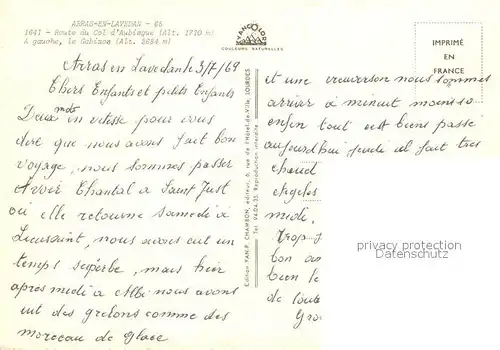 ARRAS-EN-LAVEDAN - 65
1641 - Route du Col d'Aubisque (Alt. 1710 m)
A gauche, le Gabizos (Alt. 2684 m)
YANCOLOR
COULEURS NATURELLES
IMPRIMÉ
EN
FRANCE
Edition YAN P. CHAMBON, éditeur, 6, rue de l'Hôtel-de-Ville, LOURDES
Tél. 94.04.23. Reproduction interdite
Arras en Lavedan le 3/7/69
Chers Enfants et petits Enfants
Deux mots en vitesse pour vous
dire que nous avons fait bon
voyage, nous sommes passer
Avoir Chantal à Saint Just
où elle retourne samedi à
Lieusaint, nous avons eut un
temps superbe, mais hier
après midi à Albi nous avons
eut des grelons comme des
morceau de glace
et une nous sommes
arriver à minuit moins 10
enfin tout est biens passé
aujourdhui jeudi il fait tres
chaud
midi,
Trop
bon
bien
de toute
Gro
privacy protection
Datenschutz